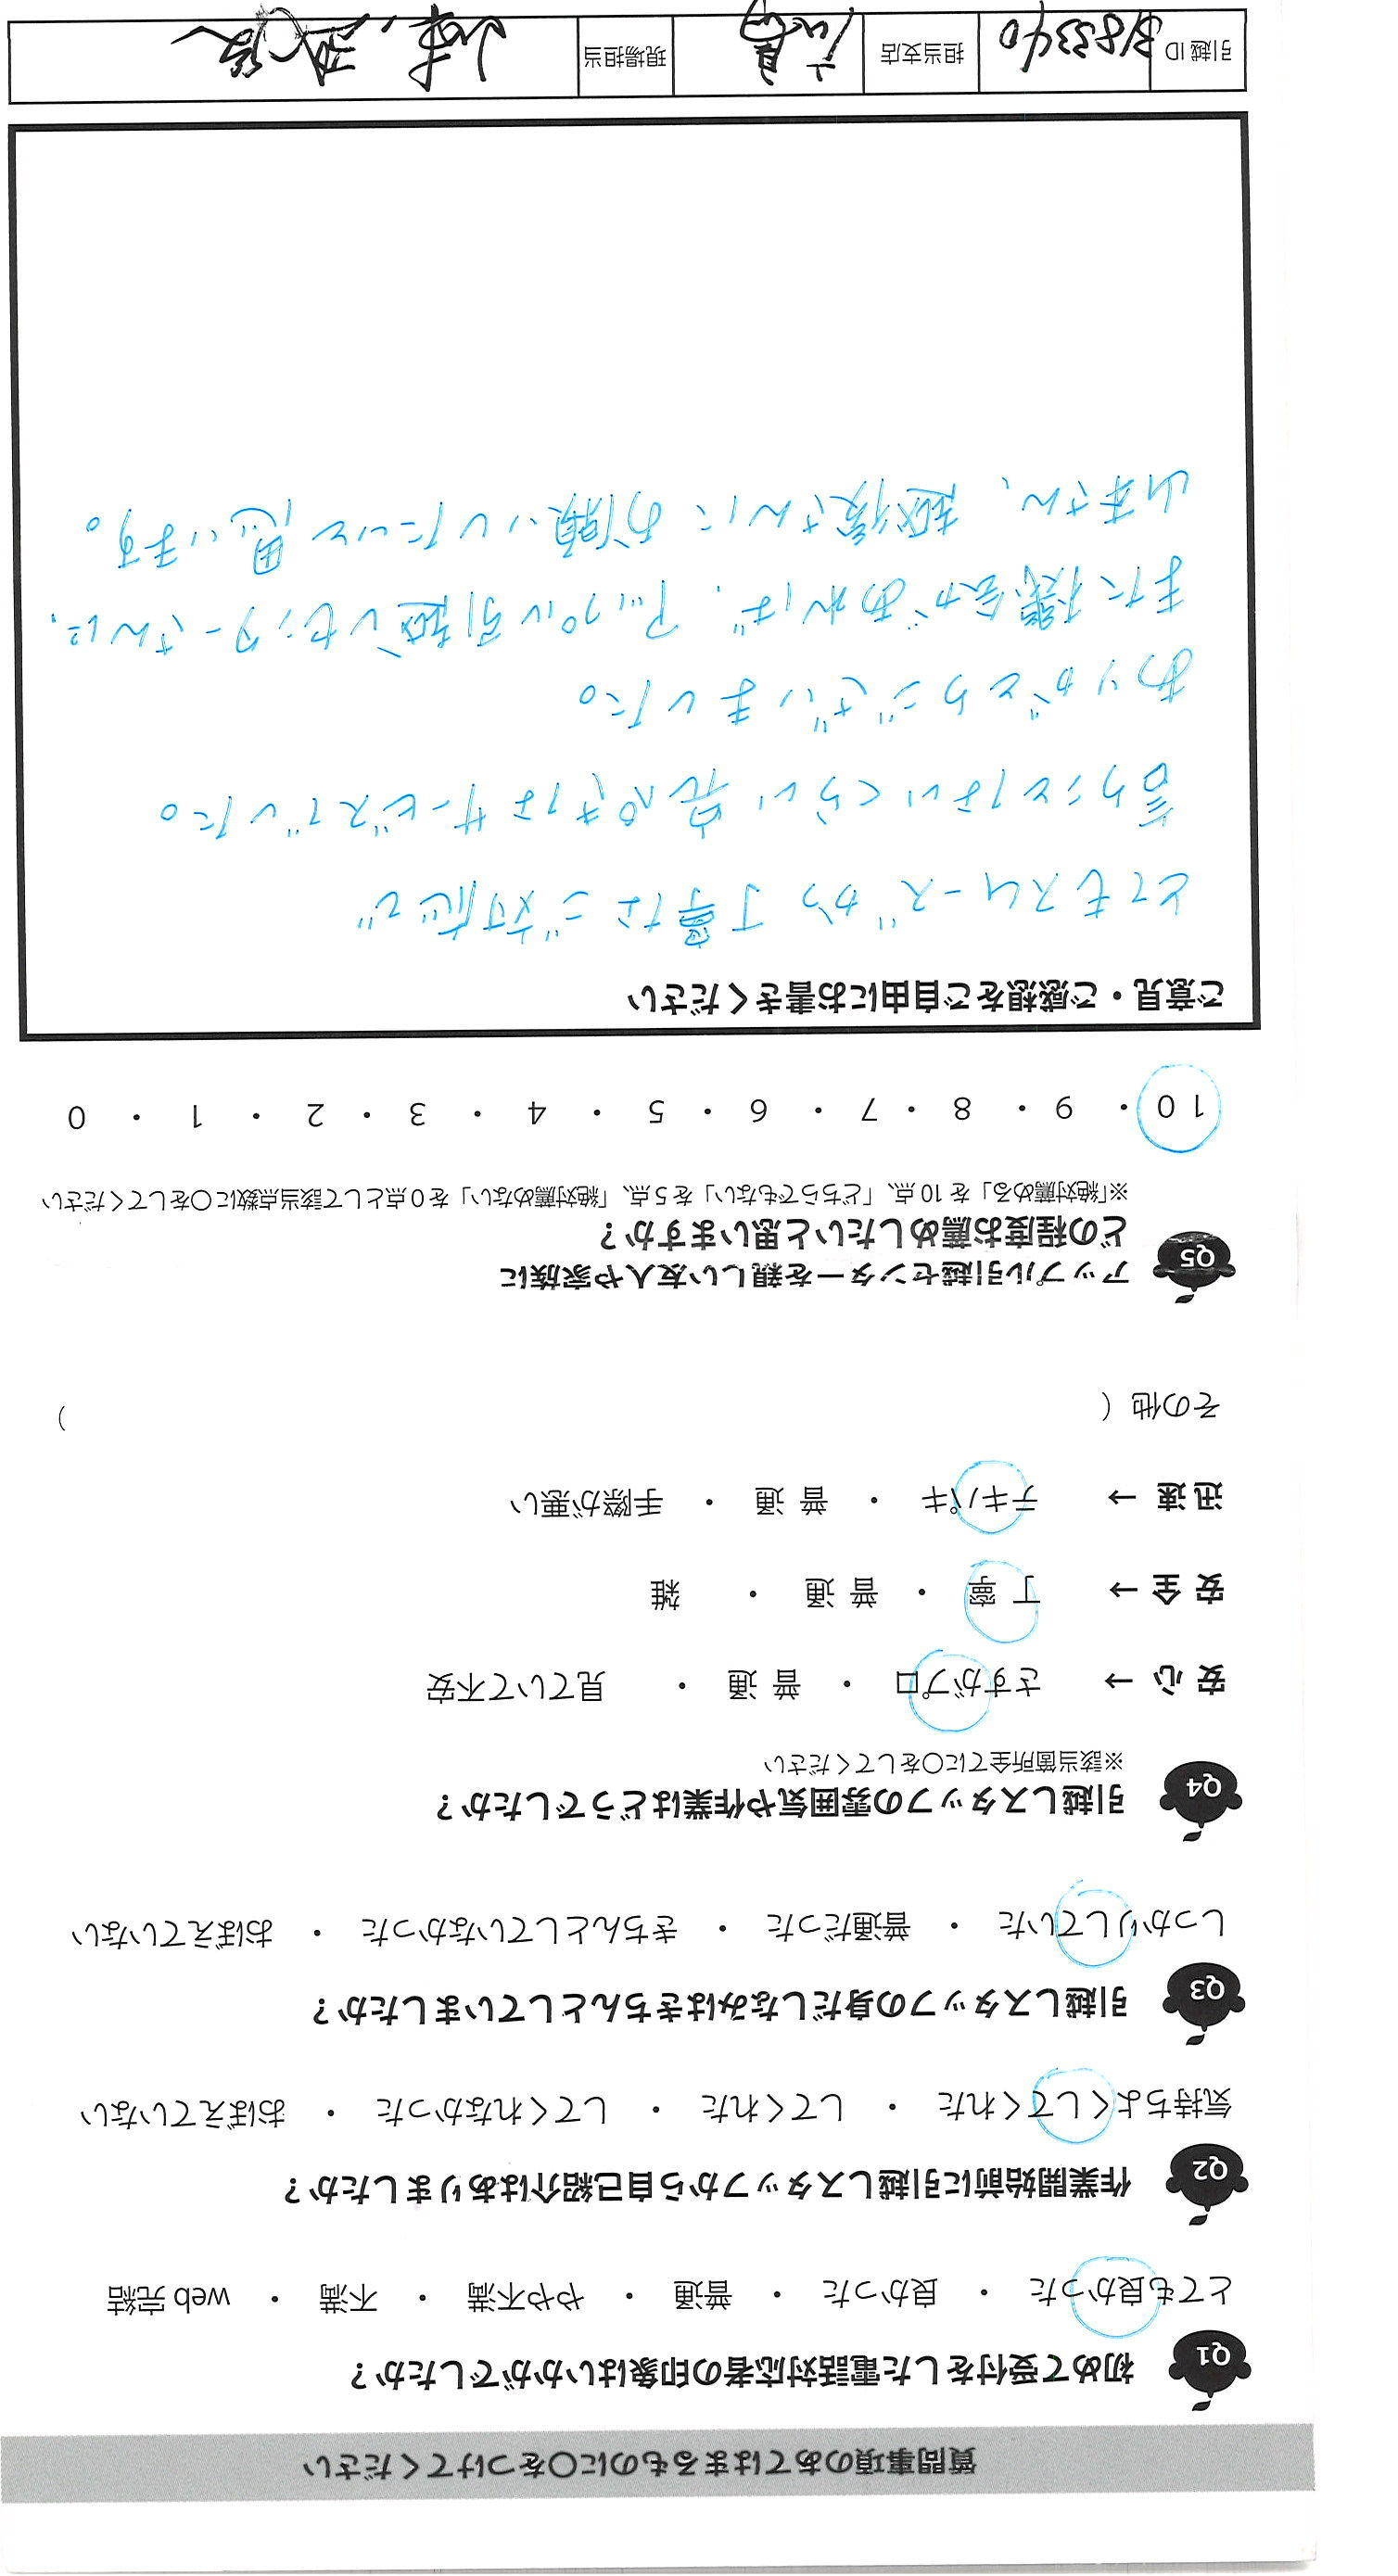 質問事項のあてはまるものに〇をつけてください
Q1 初めて受付をした電話対応者の印象はいかがでしたか？
とても良かった ・ 良かった ・ 普通 ・ やや不満 ・ 不満 ・ web 完結
Q2 作業開始前に引越しスタッフから自己紹介はありましたか？
気持ちよくしてくれた ・ してくれた ・ してくれなかった ・ おぼえていない
Q3 引越しスタッフの身だしなみはきちんとしていましたか？
しっかりしていた ・ 普通だった ・ きちんとしていなかった ・ おぼえていない
Q4 引越しスタッフの雰囲気や作業はどうでしたか？
※該当箇所全てに〇をしてください
安 心 → さすがプロ ・ 普 通 ・ 見ていて不安
安 全 → 丁 寧 ・ 普 通 ・ 雑
迅 速 → テキパキ ・ 普 通 ・ 手際が悪い
その他（ ）
Q5 アップル引越センターを親しい友人や家族に
どの程度お薦めしたいと思いますか？
※「絶対薦める」を 10 点、「どちらでもない」を 5 点、「絶対薦めない」を 0 点として該当点数に〇をしてください
10 ・ 9 ・ 8 ・ 7 ・ 6 ・ 5 ・ 4 ・ 3 ・ 2 ・ 1 ・ 0
ご意見・ご感想をご自由にお書きください
とてもスムーズかつ丁寧なご対応で
言うことはないくらい完ぺきなサービスでした。
ありがとうございました。
また機会があれば、アップル引越しセンターさんに、
山本さん、越後さんにお願いしたいと思います。
引越 ID 担当支店 現場担当 山本、